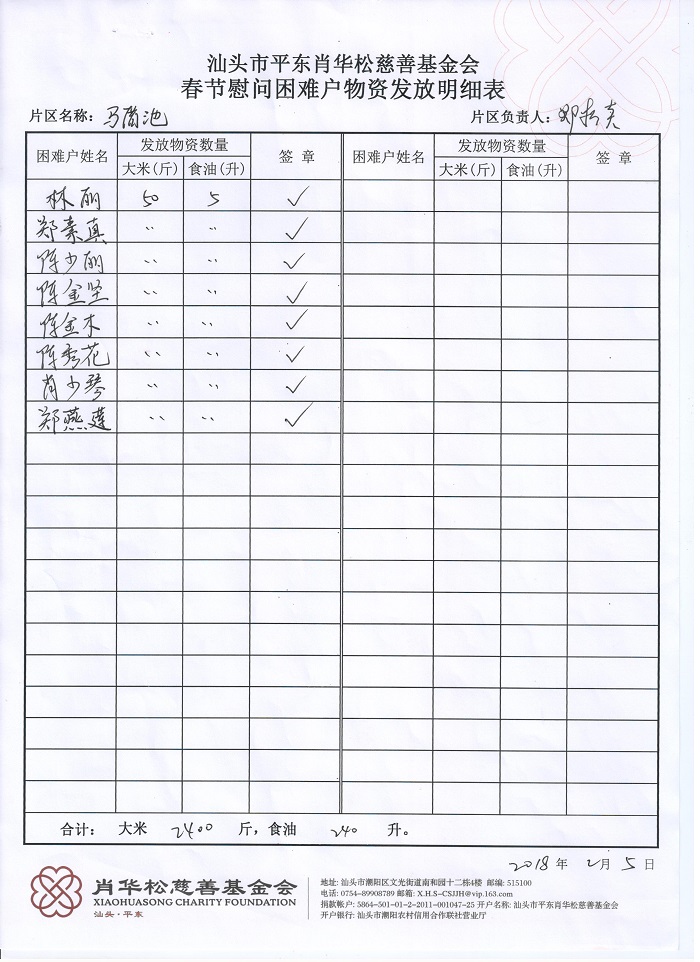 汕头市平东肖华松慈善基金会
春节慰问困难户物资发放明细表
片区名称: 马滘池 片区负责人:
困难户姓名 发放物资数量 签 章 困难户姓名 发放物资数量 签 章
大米(斤) 食油(升) 大米(斤) 食油(升)
林丽 50 5 ✓
郑素真 〃 〃 ✓
陈少丽 〃 〃 ✓
陈金坚 〃 〃 ✓
陈金木 〃 〃 ✓
陈秀花 〃 〃 ✓
肖少琴 〃 〃 ✓
郑燕莲 〃 〃 ✓
合计: 大米 2400 斤, 食油 240 升。
2018 年 2 月 5 日
肖华松慈善基金会
XIAOHUASONG CHARITY FOUNDATION
汕头·平东
地址: 汕头市潮阳区文光街道南和园十二栋4楼 邮编: 515100
电话: 0754-89908789 邮箱: X.H.S-CSJJH@vip.163.com
捐款帐户: 5864-501-01-2-2011-001047-25 开户名称: 汕头市平东肖华松慈善基金会
开户银行: 汕头市潮阳农村信用合作联社营业厅